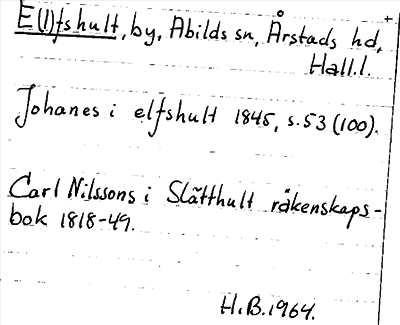 E(l)fshult, by, Abilds sn, Årstads hd,
Hall.l.
Johanes i elfshult 1845, s.53 (100).
Carl Nilssons i Slätthult räkenskaps-
bok 1818-49.
H.B.1964.